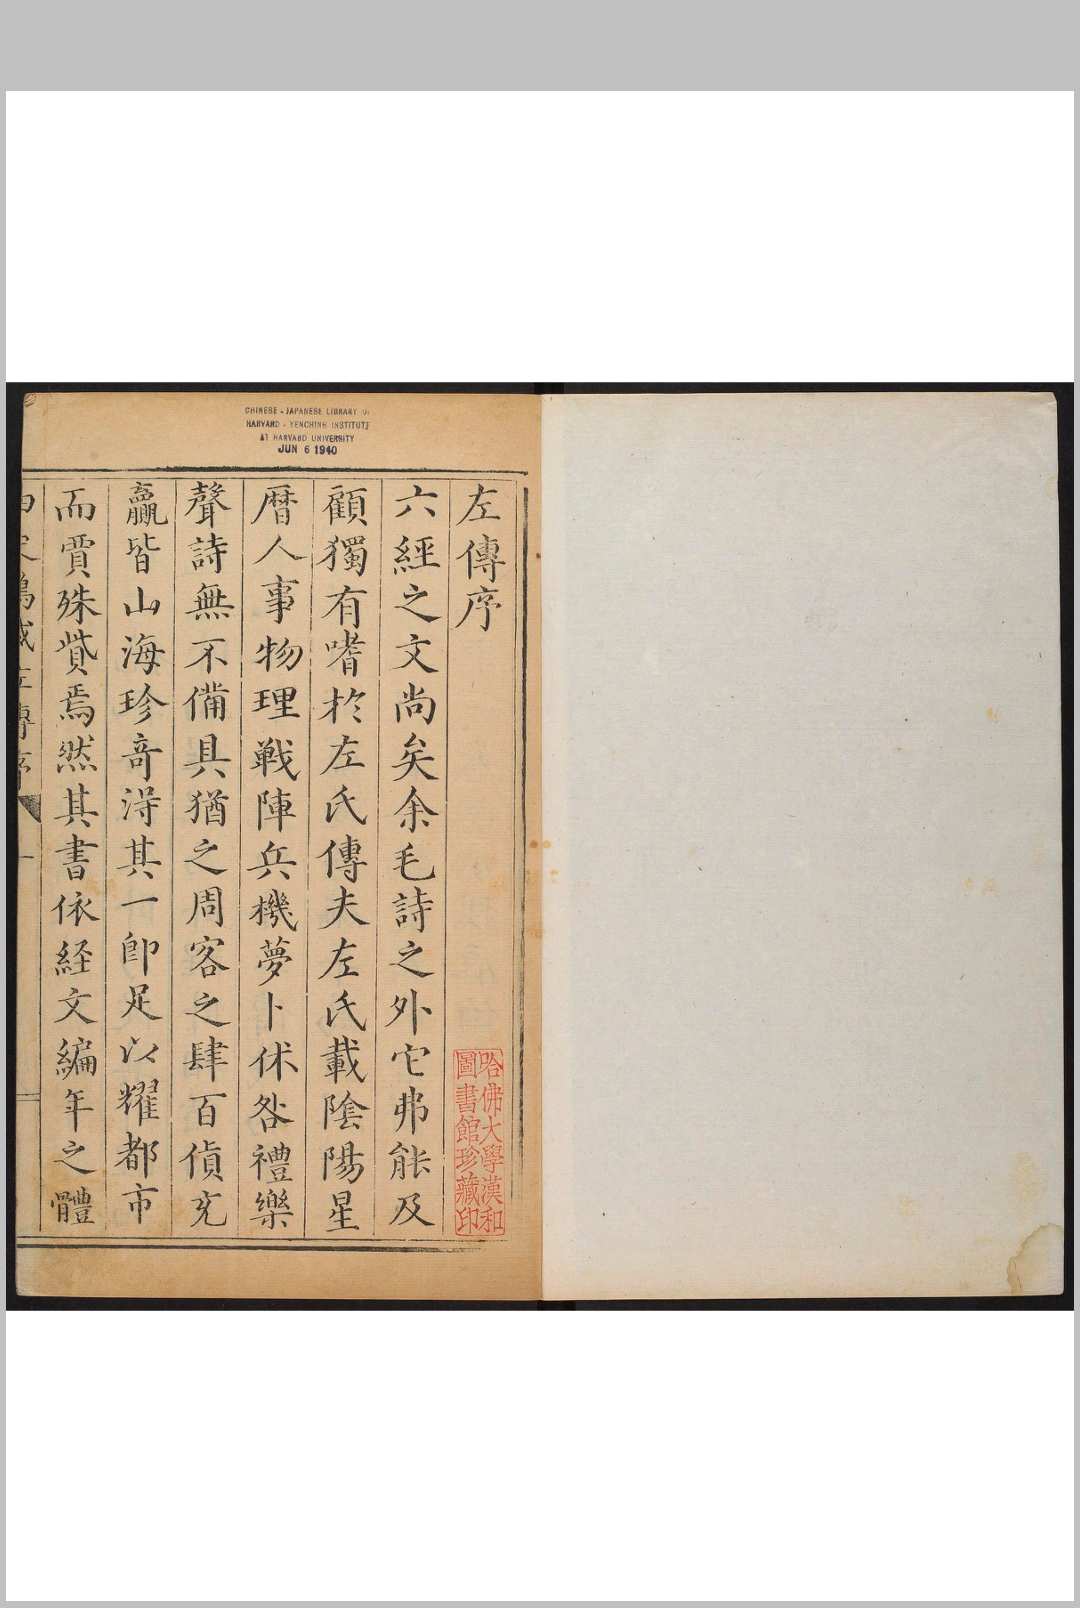 CHINESE - JAPANESE LIBRARY OF
HARVARD - YENCHING INSTITUTE
AT HARVARD UNIVERSITY
JUN 6 1940
左傳序
六經之文尚矣余毛詩之外它弗能及
顧獨有嗜於左氏傳夫左氏載陰陽星
曆人事物理戰陣兵機夢卜休咎禮樂
聲詩無不備具猶之周客之肆百貨充
贏皆山海珍奇得其一即足以耀都市
而賈殊貲焉然其書依経文編年之體
左傳序
一
哈佛大學漢和
圖書館珍藏印